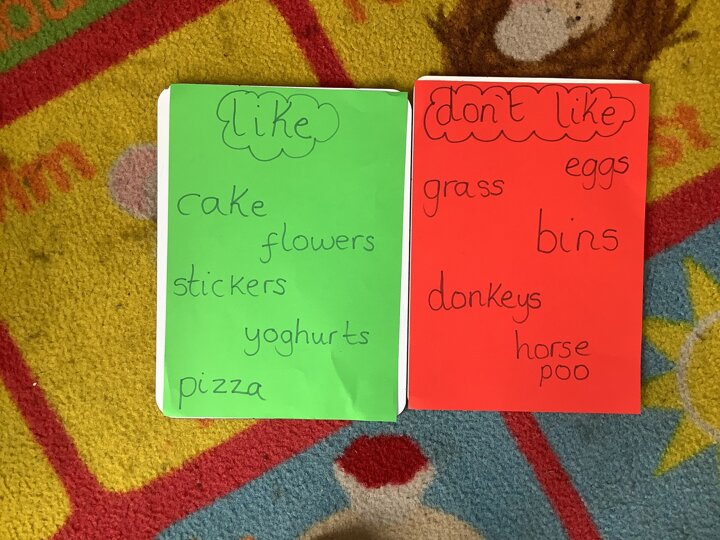 like
cake
flowers
stickers
yoghurts
pizza
don't like
eggs
grass
bins
donkeys
horse
poo